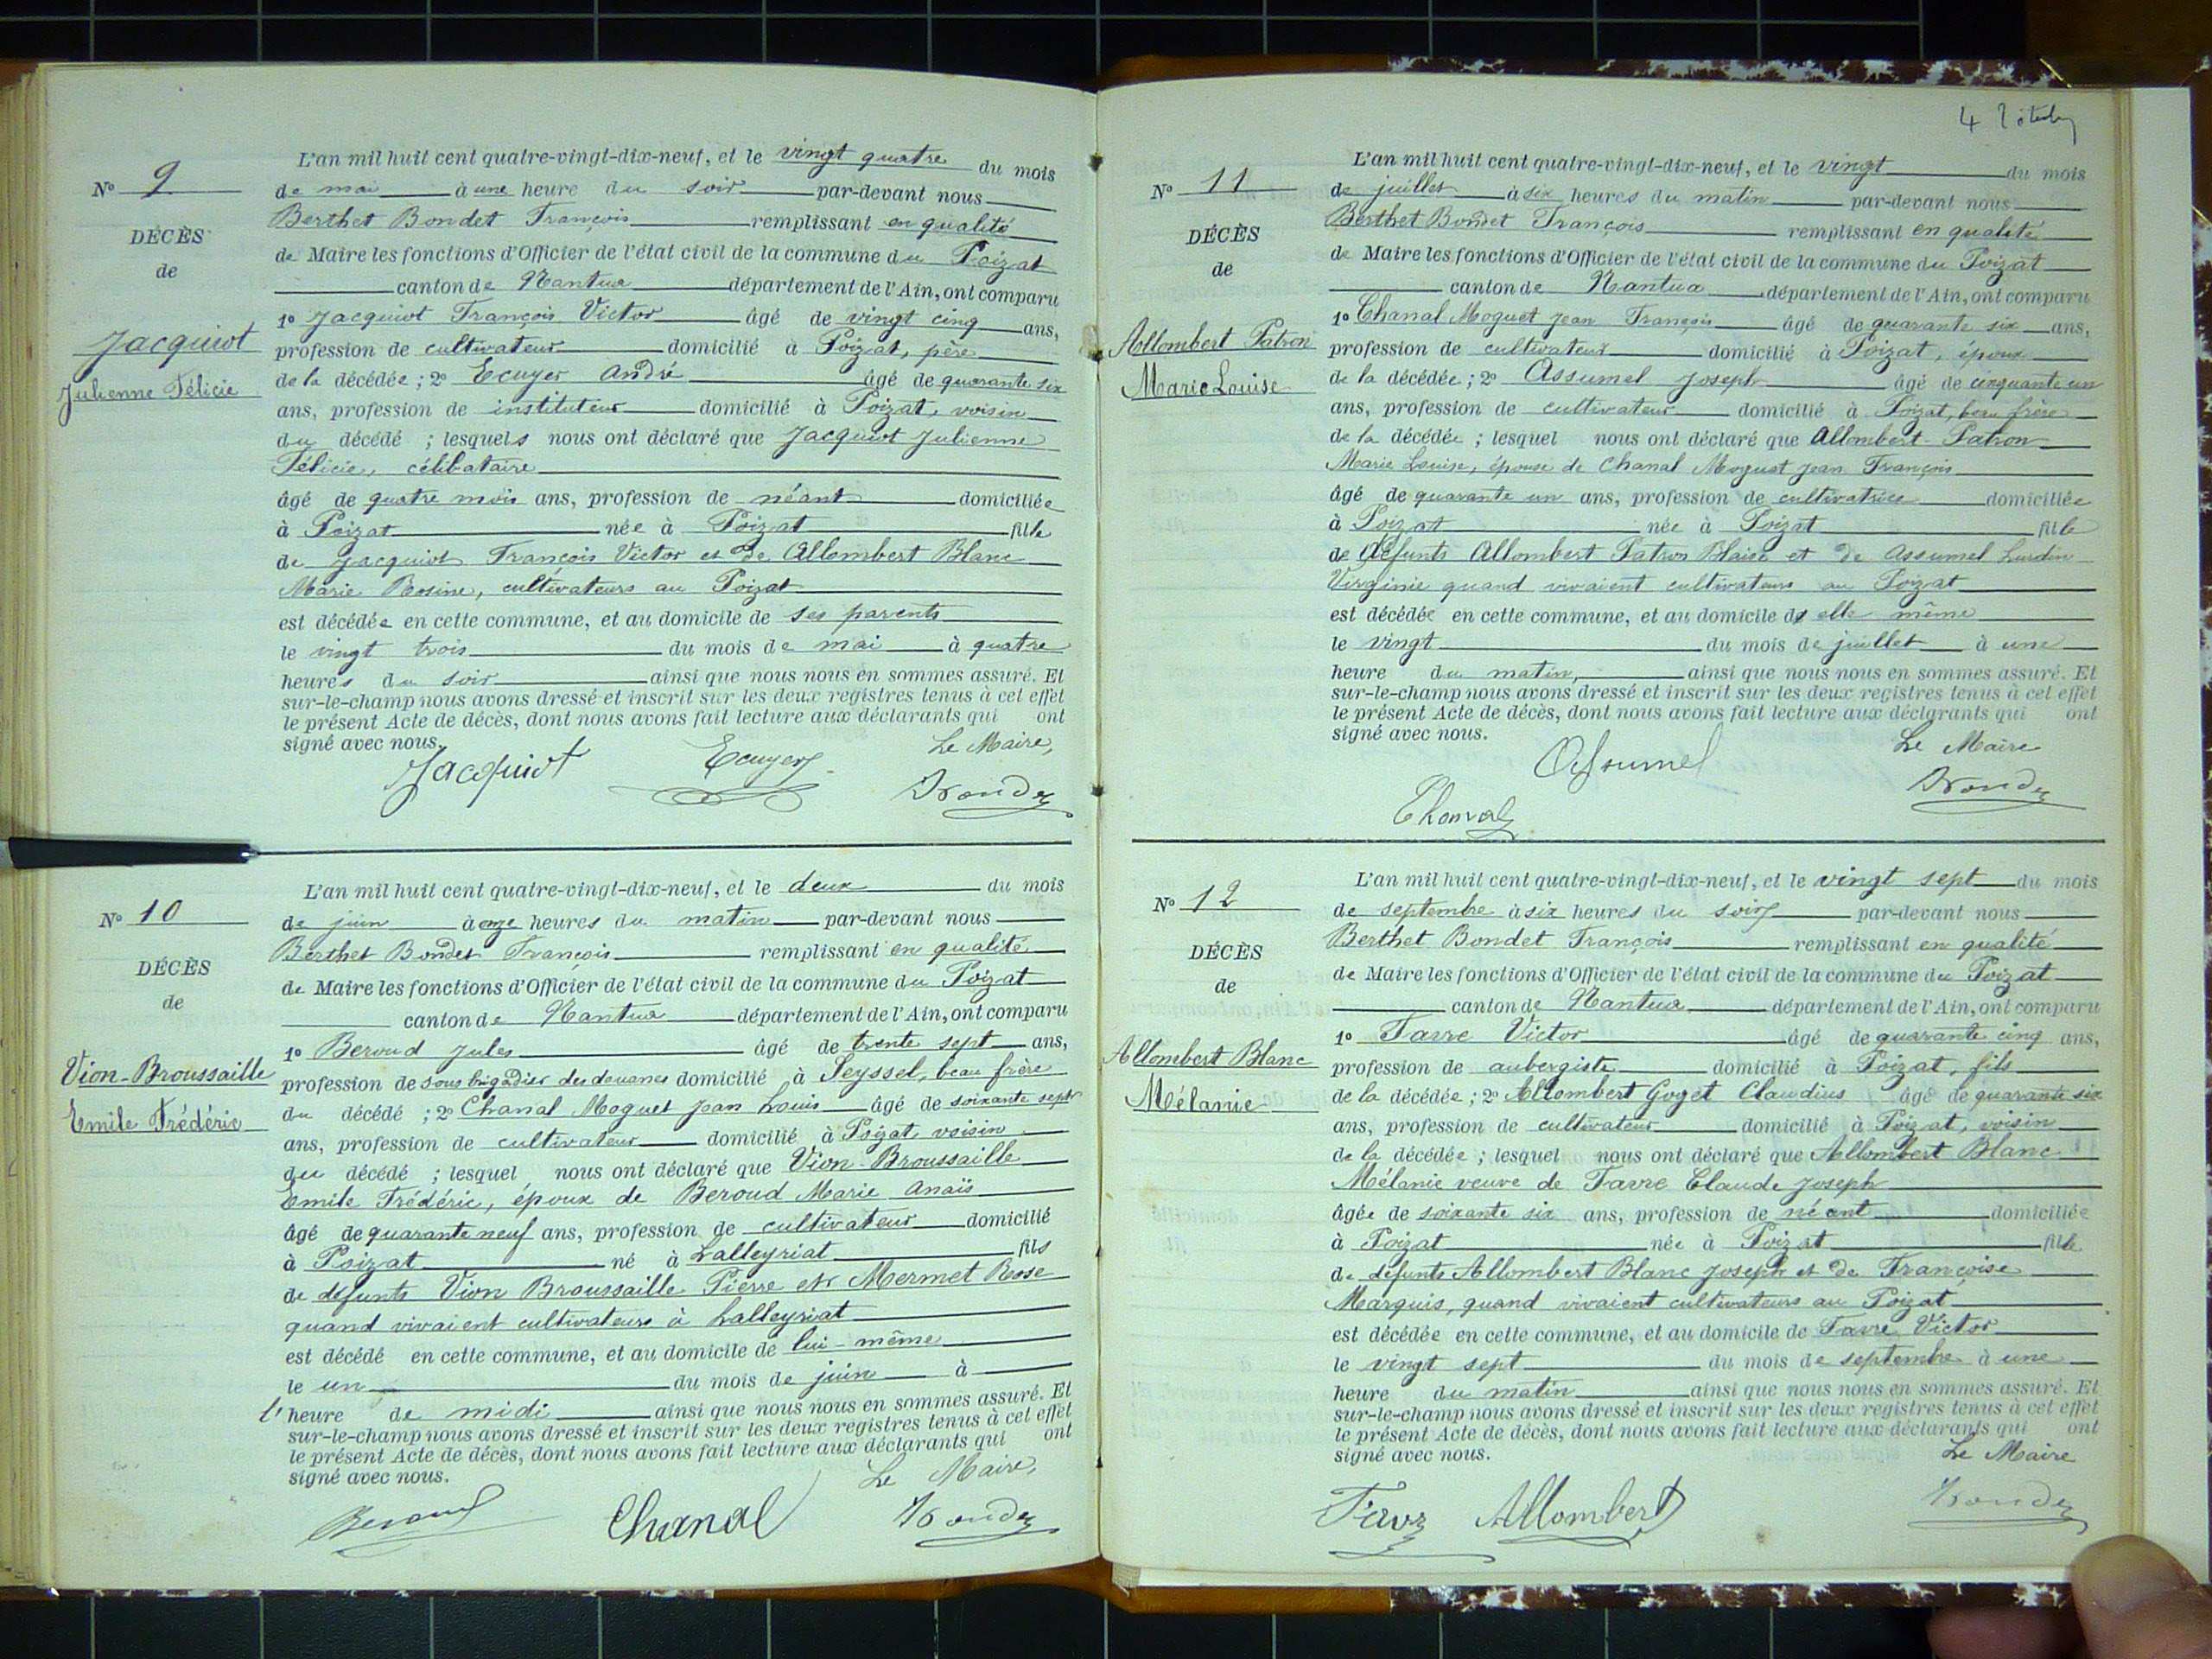 N° 9
DÉCÈS
de
Jacquiot
Julienne Félicie
L'an mil huit cent quatre-vingt-dix-neuf, et le vingt quatre du mois
de mai à une heure du soir par-devant nous
Berthet Bondet François remplissant en qualité
de Maire les fonctions d'Officier de l'état civil de la commune du Poizat
canton de Nantua département de l'Ain, ont comparu
1° Jacquiot François Victor âgé de vingt cinq ans,
profession de cultivateur domicilié à Poizat, père
de la décédée ; 2° Ecuyer André âgé de quarante six
ans, profession de instituteur domicilié à Poizat, voisin
du décédé ; lesquels nous ont déclaré que Jacquiot Julienne
Félicie, célibataire
âgé de quatre mois ans, profession de néant domiciliée
à Poizat née à Poizat fille
de Jacquiot François Victor et de Allombert Blanc
Marie Rosine, cultivateurs au Poizat
est décédée en cette commune, et au domicile de ses parents
le vingt trois du mois de mai à quatre
heures du soir ainsi que nous nous en sommes assuré. Et
sur-le-champ nous avons dressé et inscrit sur les deux registres tenus à cet effet
le présent Acte de décès, dont nous avons fait lecture aux déclarants qui ont
signé avec nous. Le Maire,
Jacquiot Ecuyer
N° 10
DÉCÈS
de
Vion-Broussaille
Emile Frédéric
L'an mil huit cent quatre-vingt-dix-neuf, et le deux du mois
de juin à onze heures du matin par-devant nous
Berthet Bondet François remplissant en qualité
de Maire les fonctions d'Officier de l'état civil de la commune du Poizat
canton de Nantua département de l'Ain, ont comparu
1° Beroud Jules âgé de trente sept ans,
profession de sous brigadier des douanes domicilié à Seyssel, beau frère
du décédé ; 2° Chanal Moguet Jean Louis âgé de soixante sept
ans, profession de cultivateur domicilié à Poizat voisin
du décédé ; lesquel nous ont déclaré que Vion-Broussaille
Emile Frédéric, époux de Beroud Marie Anaïs
âgé de quarante neuf ans, profession de cultivateur domicilié
à Poizat né à Lalleyriat fils
de défunts Vion Broussaille Pierre et Mermet Rose
quand vivaient cultivateurs à Lalleyriat
est décédé en cette commune, et au domicile de lui-même
le un du mois de juin à
l'heure de midi ainsi que nous nous en sommes assuré. Et
sur-le-champ nous avons dressé et inscrit sur les deux registres tenus à cet effet
le présent Acte de décès, dont nous avons fait lecture aux déclarants qui ont
signé avec nous. Le Maire,
Beroud Chanal
4
N° 11
DÉCÈS
de
Allombert Patron
Marie Louise
L'an mil huit cent quatre-vingt-dix-neuf, et le vingt du mois
de juillet à six heures du matin par-devant nous
Berthet Bondet François remplissant en qualité
de Maire les fonctions d'Officier de l'état civil de la commune du Poizat
canton de Nantua département de l'Ain, ont comparu
1° Chanal Moguet Jean François âgé de quarante six ans,
profession de cultivateur domicilié à Poizat, époux
de la décédée ; 2° Assumel Joseph âgé de cinquante un
ans, profession de cultivateur domicilié à Poizat, beau frère
de la décédée ; lesquel nous ont déclaré que Allombert-Patron
Marie Louise, épouse de Chanal Moguet Jean François
âgé de quarante un ans, profession de cultivatrice domiciliée
à Poizat née à Poizat fille
de défunts Allombert Patron Blaise et de Assumel Lurdin
Virginie quand vivaient cultivateurs au Poizat
est décédée en cette commune, et au domicile d'elle même
le vingt du mois de juillet à une
heure du matin, ainsi que nous nous en sommes assuré. Et
sur-le-champ nous avons dressé et inscrit sur les deux registres tenus à cet effet
le présent Acte de décès, dont nous avons fait lecture aux déclarants qui ont
signé avec nous. Le Maire
Assumel
Chanal
N° 12
DÉCÈS
de
Allombert Blanc
Mélanie
L'an mil huit cent quatre-vingt-dix-neuf, et le vingt sept du mois
de septembre à six heures du soir par-devant nous
Berthet Bondet François remplissant en qualité
de Maire les fonctions d'Officier de l'état civil de la commune du Poizat
canton de Nantua département de l'Ain, ont comparu
1° Favre Victor âgé de quarante cinq ans,
profession de aubergiste domicilié à Poizat, fils
de la décédée ; 2° Allombert Goget Claudius âgé de quarante six
ans, profession de cultivateur domicilié à Poizat, voisin
de la décédée ; lesquel nous ont déclaré que Allombert Blanc
Mélanie veuve de Favre Claude Joseph
âgée de soixante six ans, profession de néant domiciliée
à Poizat née à Poizat fille
de défunts Allombert Blanc Joseph et de Françoise
Marquis, quand vivaient cultivateurs au Poizat
est décédée en cette commune, et au domicile de Favre Victor
le vingt sept du mois de septembre à une
heure du matin ainsi que nous nous en sommes assuré. Et
sur-le-champ nous avons dressé et inscrit sur les deux registres tenus à cet effet
le présent Acte de décès, dont nous avons fait lecture aux déclarants qui ont
signé avec nous. Le Maire
Favre Allombert